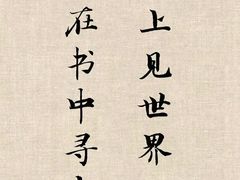 上见世界
在书中寻